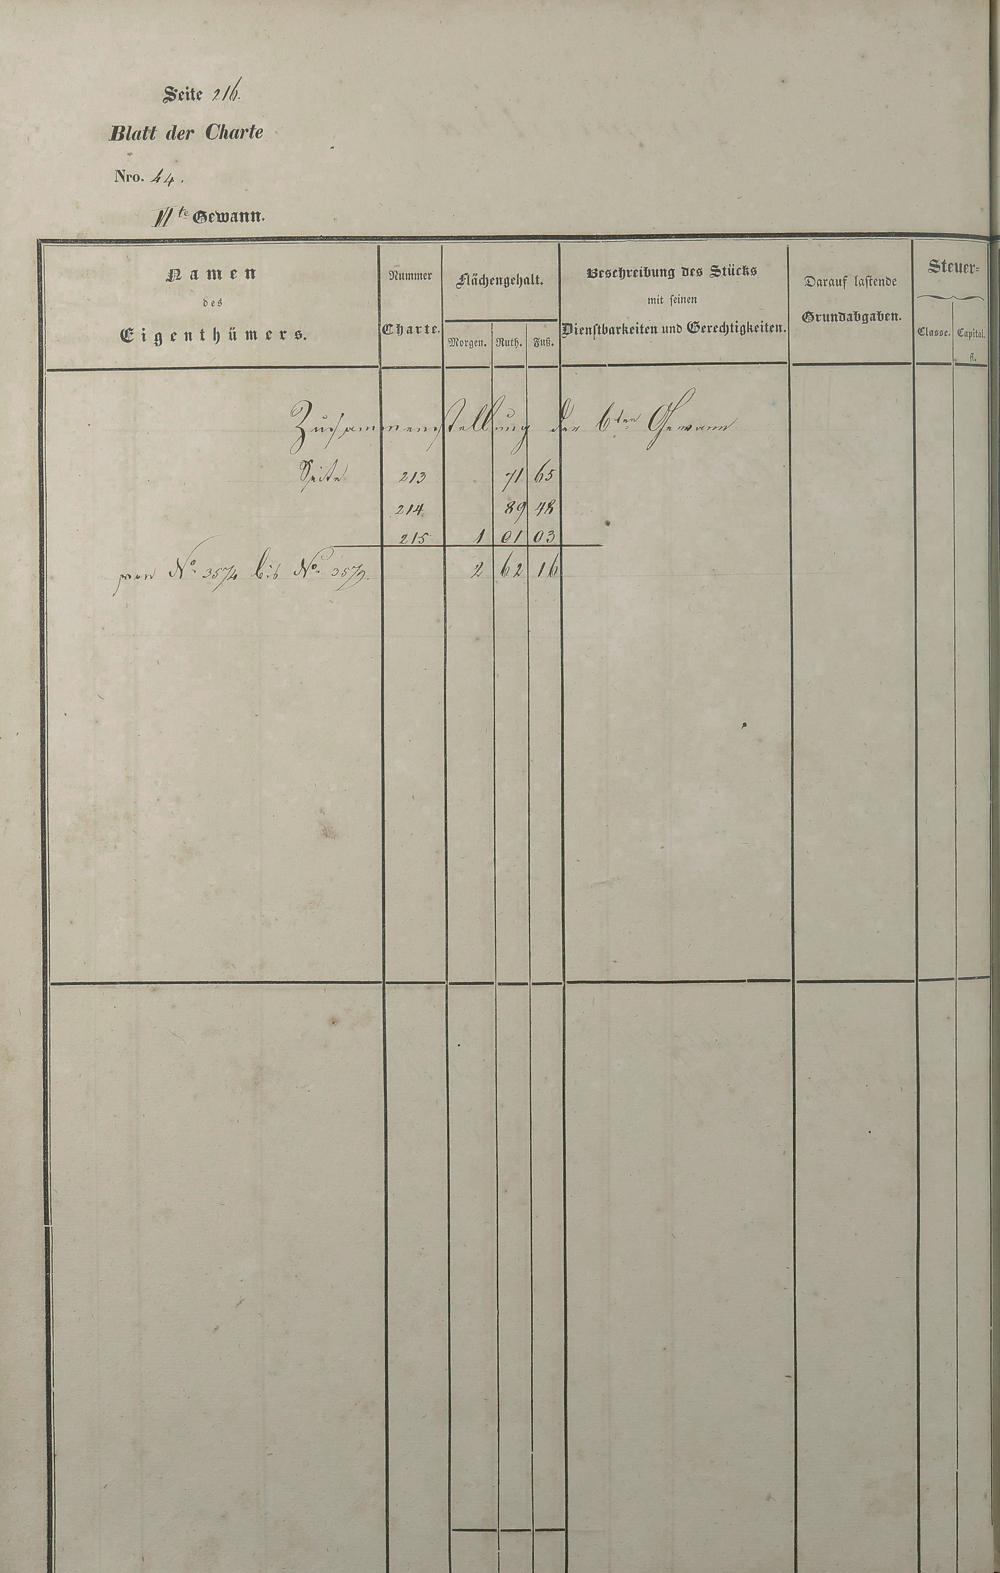 Seite 216.
Blatt der Charte
Nro. 44.
VIte Gewann.
Namen des Eigenthümers.
Nummer Charte.
Flächengehalt.
Morgen. Ruth. Fuß.
Beschreibung des Stücks mit seinen Dienstbarkeiten und Gerechtigkeiten.
Darauf lastende Grundabgaben.
Steuer=
Classe. Capital.
fl.
Zusammenstellung der 6ten Gewann
Seite 213 71 65
214 89 48
215 1 01 03
von No. 3574 bis No. 3579. 2 62 16